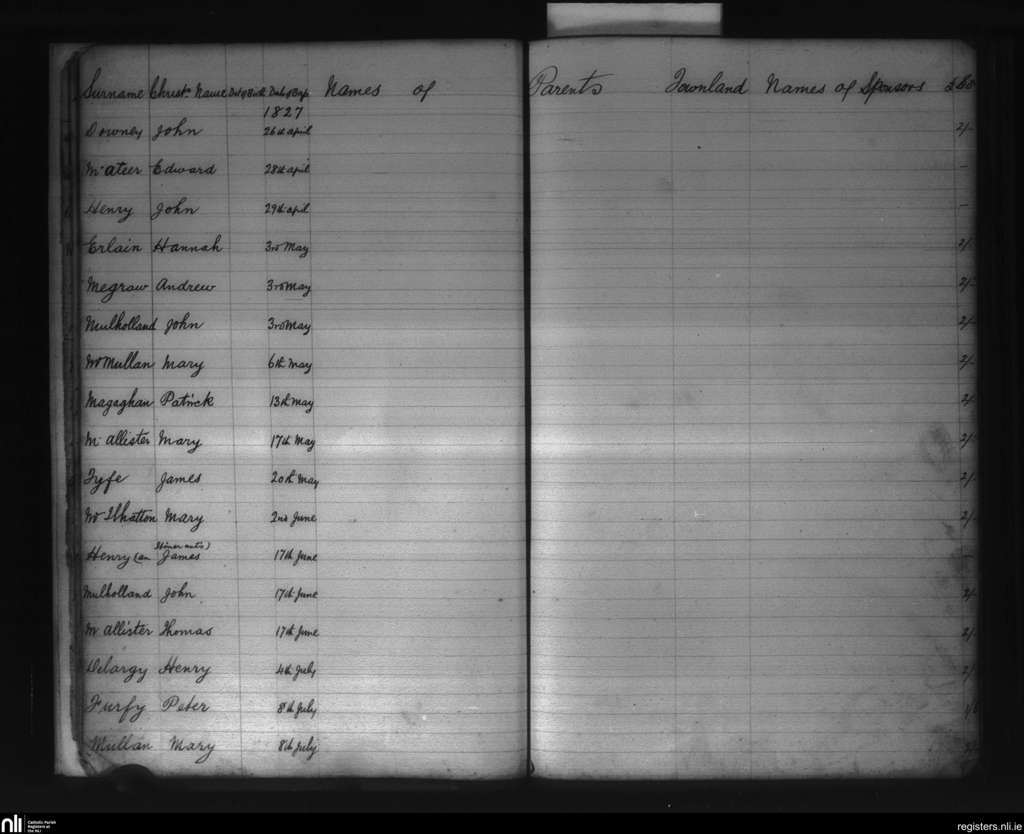 Surname Christn Name Date of Birth Date of Bap Names of Parents Townland Names of Sponsors
1827
Downey John 26th april 2/-
Mc ateer Edward 28th april -
Henry John 29th april -
Erlain Hannah 3rd May 2/-
Megraw Andrew 3rd May 2/-
Mulholland John 3rd May 2/-
Mc Mullan Mary 6th May 2/-
Magaghan Patrick 13th May 2/-
Mc allister Mary 17th May 2/-
Fyfe James 20th May 2/-
Mc Ilhatton Mary 2nd June 2/-
Henry (an Itinerantis) James 17th June -
Mulholland John 17th June 2/-
Mc allister Thomas 17th June 2/-
Delargy Henry 4th July 2/-
Furfy Peter 8th July
Mullan Mary 8th July
nli Catholic Parish
Registers at
the NLI
registers.nli.ie